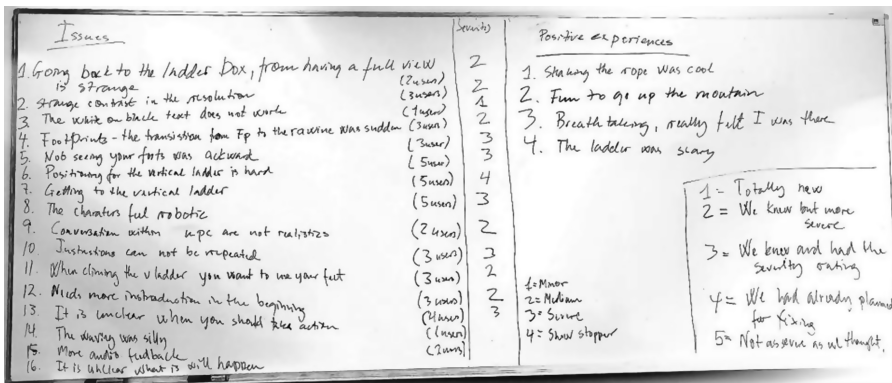 Issues
Severity
1. Going back to the ladder box, from having a full view
is strange (2 users) 2
2. Strange contrast in the resolution (3 users) 2
3. The white on black text does not work (1 user) 1
4. Footprints - the transistion from Fp to the ravine was sudden (3 users) 2
5. Not seeing your foots was ackward (3 user) 3
6. Positioning for the vertical ladder is hard (5 user) 3
7. Getting to the vertical ladder (5 user) 4
8. The charaters feel robotic (5 users) 3
9. Conversation within npc are not realistics (2 users) 2
10 Instructions can not be repeated (3 users) 3
11. When climing the v ladder you want to use your feet (3 users) 2
12. Needs more instroduction in the beginning (3 users) 2
13. It is unclear when you should take action (4 users) 3
14. The waving was silly (1 users)
15. More audio feedback (2 users)
16. It is unclear what is will happen
1 = Minor
2 = Medium
3 = Severe
4 = Show stopper
Positive experiences
1. Shaking the rope was cool
2. Fun to go up the mountain
3. Breath taking, really felt I was there
4. The ladder was scary
1 = Totally new
2 = We knew but more
severe
3 = We knew and had the
severity rating
4 = We had already planned
for fixing
5 = Not as severe as we thought.